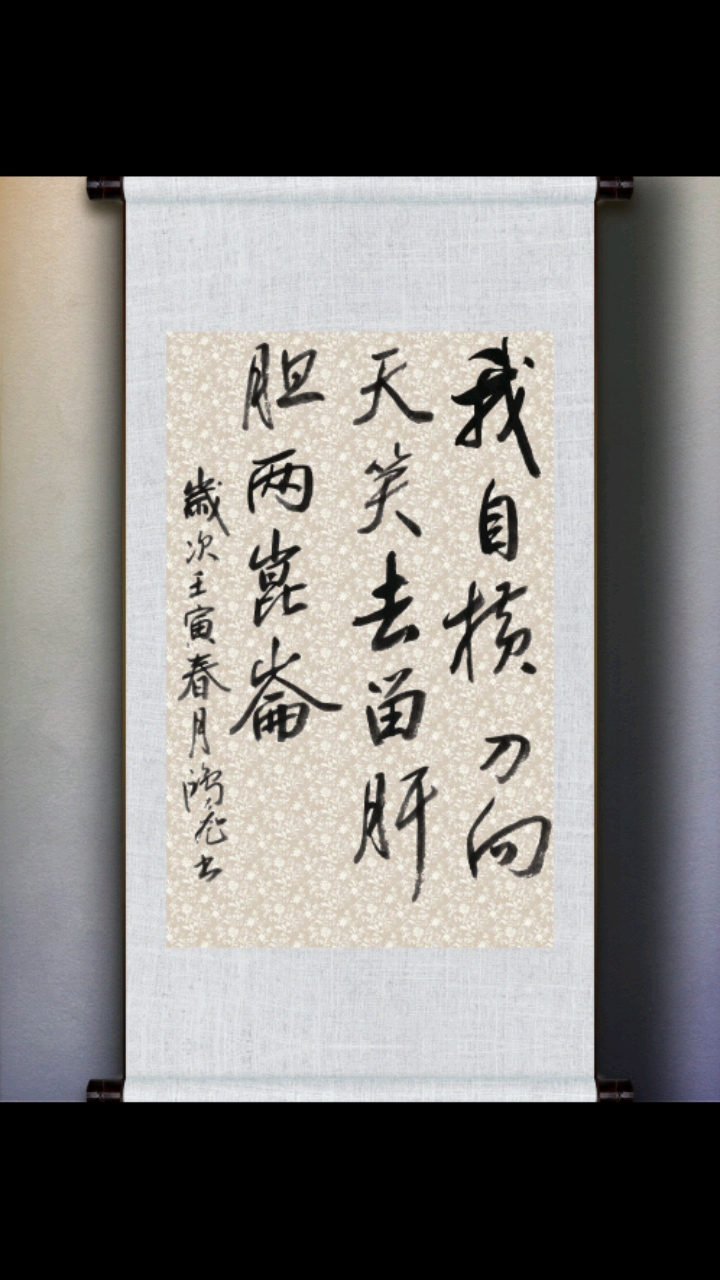 我自横刀向
天笑去留肝
胆两崑崙
歲次壬寅春月鴻 书